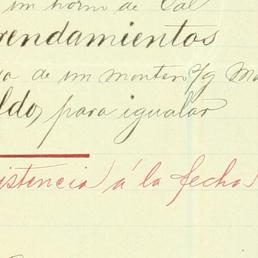 un horno de Cal
rendamientos
a de un monten c/g Ma
ldo, para igualar
istencia á la fecha